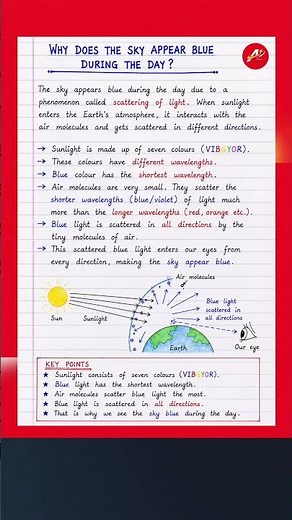 WHY DOES THE SKY APPEAR BLUE
DURING THE DAY?
The sky appears blue during the day due to a
phenomenon called scattering of light. When sunlight
enters the Earth's atmosphere, it interacts with the
air molecules and gets scattered in different directions.
→ Sunlight is made up of seven colours (VIBGYOR).
→ These colours have different wavelengths.
→ Blue colour has the shortest wavelength.
→ Air molecules are very small. They scatter the
shorter wavelengths (blue/violet) of light much
more than the longer wavelengths (red, orange etc.).
→ Blue light is scattered in all directions by the
tiny molecules of air.
→ This scattered blue light enters our eyes from
every direction, making the sky appear blue.
Air molecules
Blue light
scattered in
all directions
Sun
Sunlight
Earth
Our eye
KEY POINTS
★ Sunlight consists of seven colours (VIBGYOR).
★ Blue light has the shortest wavelength.
★ Air molecules scatter blue light the most.
★ Blue light is scattered in all directions.
★ That is why we see the sky blue during the day.